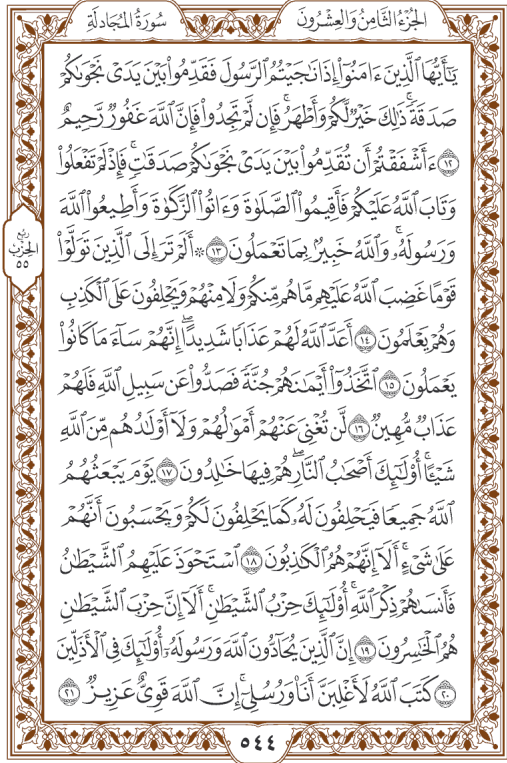 الجُزْءُ الثَّامِنُ وَالعِشْرُونَ
سُورَةُ المُجَادلَةِ
يَٰٓأَيُّهَا ٱلَّذِينَ ءَامَنُوٓا۟ إِذَا نَٰجَيْتُمُ ٱلرَّسُولَ فَقَدِّمُوا۟ بَيْنَ يَدَىْ نَجْوَىٰكُمْ
صَدَقَةً ۚ ذَٰلِكَ خَيْرٌ لَّكُمْ وَأَطْهَرُ ۚ فَإِن لَّمْ تَجِدُوا۟ فَإِنَّ ٱللَّهَ غَفُورٌ رَّحِيمٌ
١٢ ءَأَشْفَقْتُمْ أَن تُقَدِّمُوا۟ بَيْنَ يَدَىْ نَجْوَىٰكُمْ صَدَقَٰتٍ ۚ فَإِذْ لَمْ تَفْعَلُوا۟
وَتَابَ ٱللَّهُ عَلَيْكُمْ فَأَقِيمُوا۟ ٱلصَّلَوٰةَ وَءَاتُوا۟ ٱلزَّكَوٰةَ وَأَطِيعُوا۟ ٱللَّهَ
وَرَسُولَهُۥ ۚ وَٱللَّهُ خَبِيرٌۢ بِمَا تَعْمَلُونَ ١٣ ۞ أَلَمْ تَرَ إِلَى ٱلَّذِينَ تَوَلَّوْا۟
قَوْمًا غَضِبَ ٱللَّهُ عَلَيْهِم مَّا هُم مِّنكُمْ وَلَا مِنْهُمْ وَيَحْلِفُونَ عَلَى ٱلْكَذِبِ
وَهُمْ يَعْلَمُونَ ١٤ أَعَدَّ ٱللَّهُ لَهُمْ عَذَابًا شَدِيدًا ۖ إِنَّهُمْ سَآءَ مَا كَانُوا۟
يَعْمَلُونَ ١٥ ٱتَّخَذُوٓا۟ أَيْمَٰنَهُمْ جُنَّةً فَصَدُّوا۟ عَن سَبِيلِ ٱللَّهِ فَلَهُمْ
عَذَابٌ مُّهِينٌ ١٦ لَّن تُغْنِىَ عَنْهُمْ أَمْوَٰلُهُمْ وَلَآ أَوْلَٰدُهُم مِّنَ ٱللَّهِ
شَيْـًٔا ۚ أُو۟لَٰٓئِكَ أَصْحَٰبُ ٱلنَّارِ ۖ هُمْ فِيهَا خَٰلِدُونَ ١٧ يَوْمَ يَبْعَثُهُمُ
ٱللَّهُ جَمِيعًا فَيَحْلِفُونَ لَهُۥ كَمَا يَحْلِفُونَ لَكُمْ ۖ وَيَحْسَبُونَ أَنَّهُمْ
عَلَىٰ شَىْءٍ ۚ أَلَآ إِنَّهُمْ هُمُ ٱلْكَٰذِبُونَ ١٨ ٱسْتَحْوَذَ عَلَيْهِمُ ٱلشَّيْطَٰنُ
فَأَنسَىٰهُمْ ذِكْرَ ٱللَّهِ ۚ أُو۟لَٰٓئِكَ حِزْبُ ٱلشَّيْطَٰنِ ۚ أَلَآ إِنَّ حِزْبَ ٱلشَّيْطَٰنِ
هُمُ ٱلْخَٰسِرُونَ ١٩ إِنَّ ٱلَّذِينَ يُحَآدُّونَ ٱللَّهَ وَرَسُولَهُۥٓ أُو۟لَٰٓئِكَ فِى ٱلْأَذَلِّينَ
٢٠ كَتَبَ ٱللَّهُ لَأَغْلِبَنَّ أَنَا۠ وَرُسُلِىٓ ۚ إِنَّ ٱللَّهَ قَوِىٌّ عَزِيزٌ ٢١
ربع
الحزب
٥٥
٥٤٤